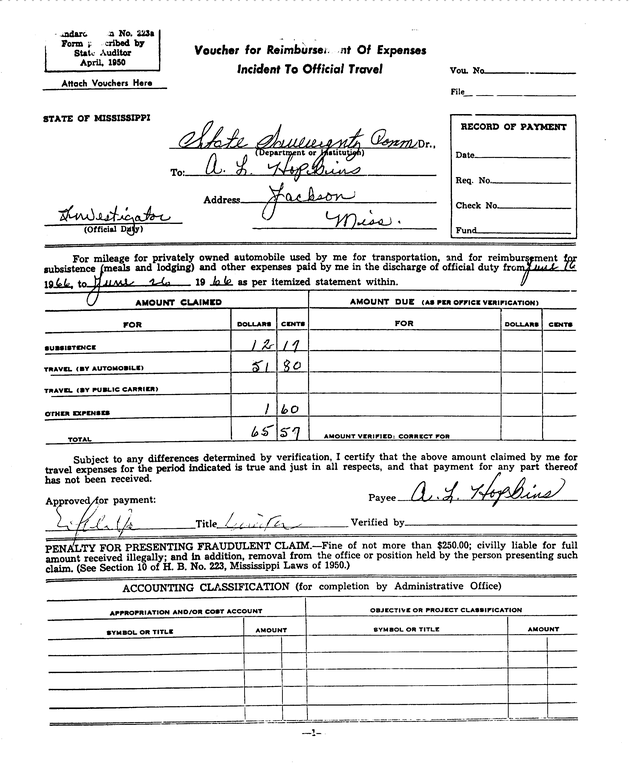 No. 223a
Form by
State Auditor
April, 1950
Attach Vouchers Here
Voucher for Of Expenses
Incident To Official Travel
Vou. No.
File
STATE OF MISSISSIPPI
State Sovereignty Comm Dr.,
(Department or Institution)
To: A. L. Hopkins
Address Jackson
Miss.
Investigator
(Official Duty)
RECORD OF PAYMENT
Date
Req. No.
Check No.
Fund
For mileage for privately owned automobile used by me for transportation, and for reimbursement for
subsistence (meals and lodging) and other expenses paid by me in the discharge of official duty from June 16
1966, to June 26 1966 as per itemized statement within.
AMOUNT CLAIMED AMOUNT DUE (AS PER OFFICE VERIFICATION)
FOR DOLLARS CENTS FOR DOLLARS CENTS
SUBSISTENCE 12 17
TRAVEL (BY AUTOMOBILE) 51 80
TRAVEL (BY PUBLIC CARRIER)
OTHER EXPENSES 1 60
TOTAL 65 57 AMOUNT VERIFIED: CORRECT FOR
Subject to any differences determined by verification, I certify that the above amount claimed by me for
travel expenses for the period indicated is true and just in all respects, and that payment for any part thereof
has not been received.
Approved for payment:
Payee A. L. Hopkins
Title Verified by
PENALTY FOR PRESENTING FRAUDULENT CLAIM.—Fine of not more than $250.00; civilly liable for full
amount received illegally; and in addition, removal from the office or position held by the person presenting such
claim. (See Section 10 of H. B. No. 223, Mississippi Laws of 1950.)
ACCOUNTING CLASSIFICATION (for completion by Administrative Office)
APPROPRIATION AND/OR COST ACCOUNT OBJECTIVE OR PROJECT CLASSIFICATION
SYMBOL OR TITLE AMOUNT SYMBOL OR TITLE AMOUNT
—1—